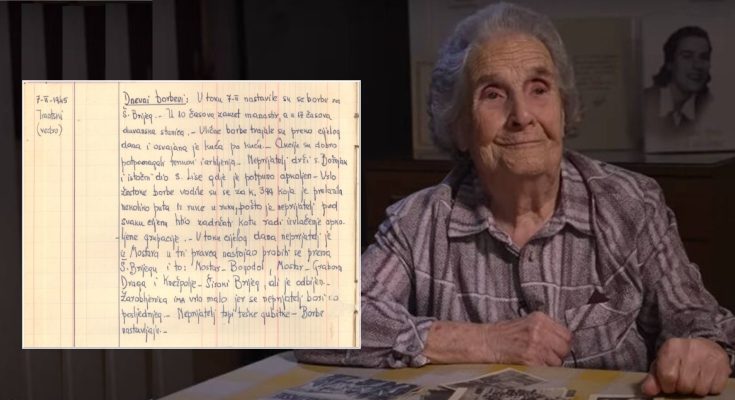 7-II-1945
Imotski
(vedro)
Dnevni borbeni: U toku 7-II nastavile su se borbe na
Š. Brijeg.- U 10 časova zauzet manastir, a u 17 časova
duvanska stanica.- Ulične borbe trajale su preko cijelog
dana i osvajana je kuća po kuća.- Akcije su dobro
potpomagali tenkovi i artiljerija.- Neprijatelj drži s.
i istočni dio s. Lise gdje je potpuno opkoljen.- Vrlo
žestoke borbe vodile su se za k. 394 koja je prelazila
nekoliko puta iz ruke u ruku, pošto je neprijatelj pod
svaku cijenu htio zadržati kotu radi izvlačenja opko-
ljene grupacije.- U toku cijelog dana neprijatelj je
iz Mostara u tri pravca nastojao probiti se prema
Š. Brijegu i to: Mostar - Bogodol, Mostar - Grabova
Draga i Knešpolje - Široki Brijeg, ali je odbijen.-
Zarobljenika ima vrlo malo jer se neprijatelj bori do
posljednjeg.- Neprijatelj trpi teške gubitke - Borbe
nastavljaju.-